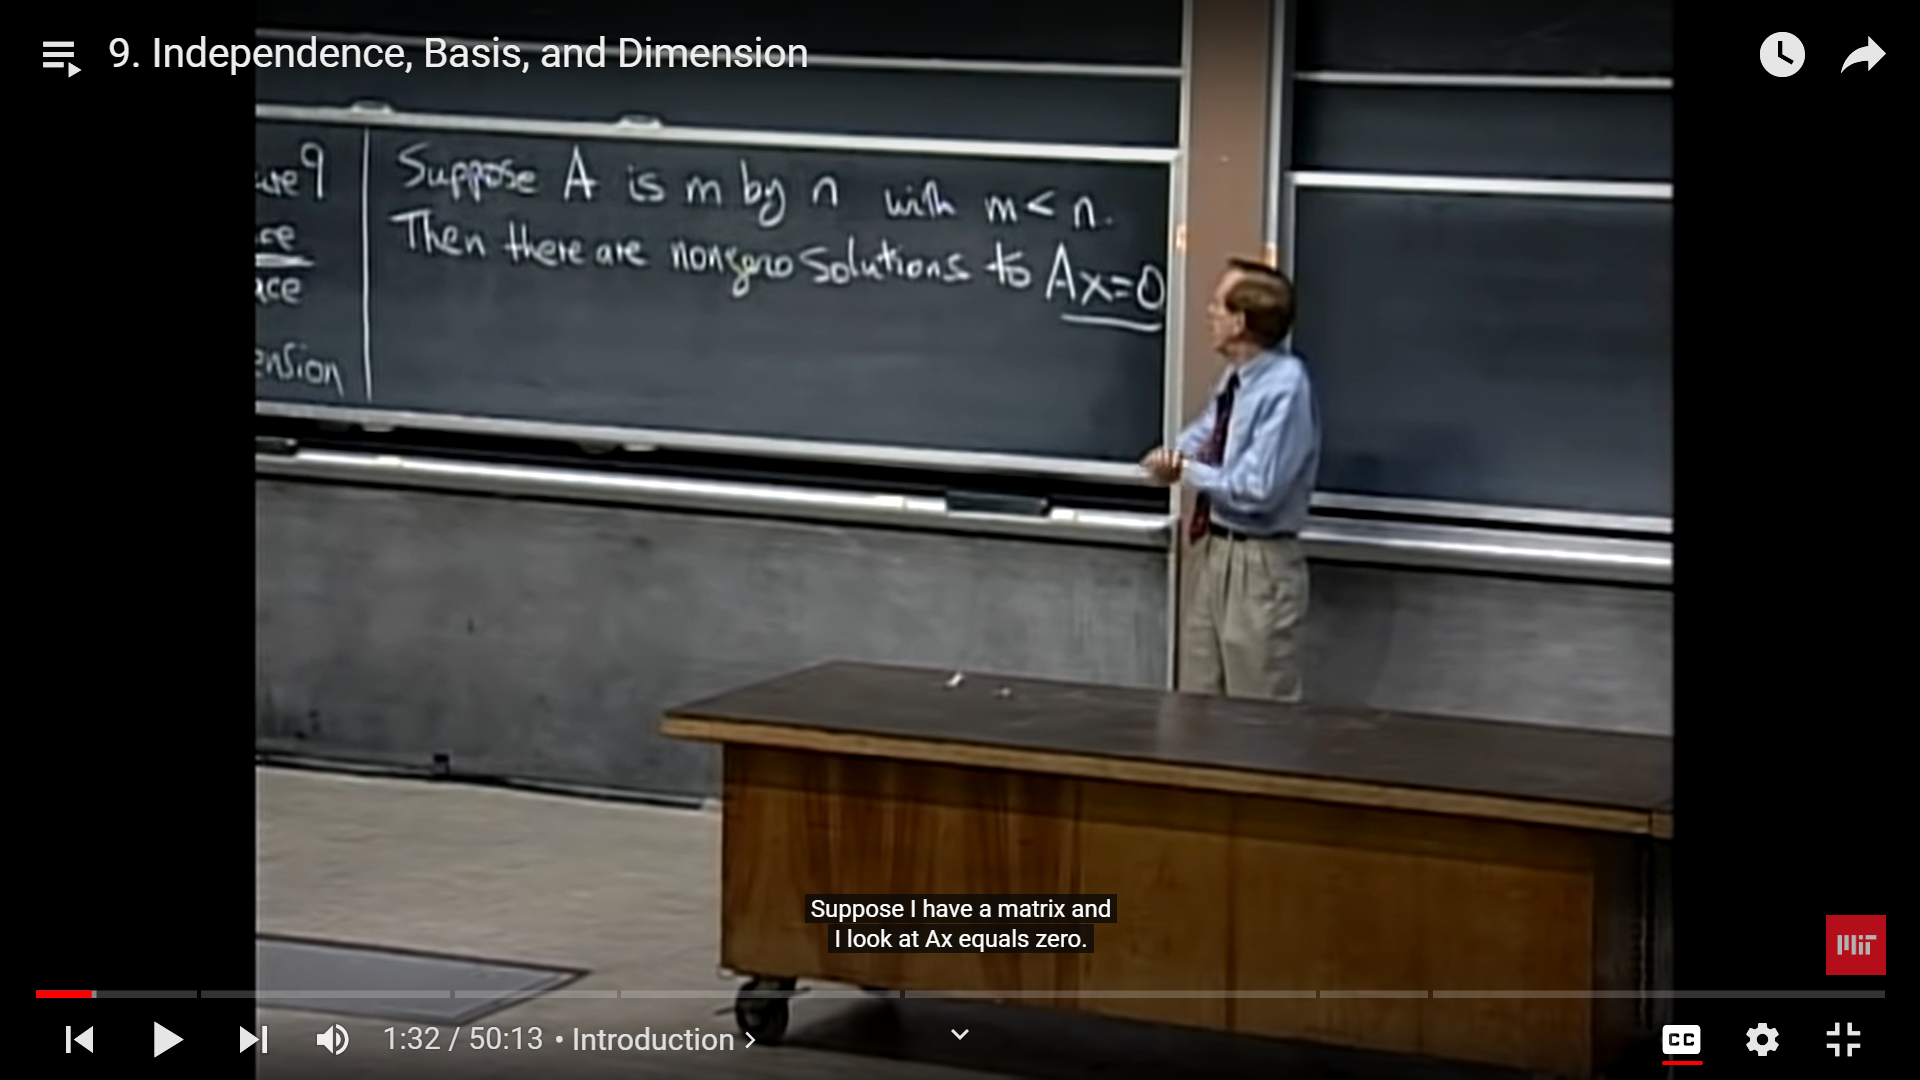 9. Independence, Basis, and Dimension
ure 9
ce
ace
ension
Suppose A is m by n with m < n.
Then there are nonzero solutions to Ax=0
Suppose I have a matrix and
I look at Ax equals zero.
MIT
1:32 / 50:13 • Introduction >
CC